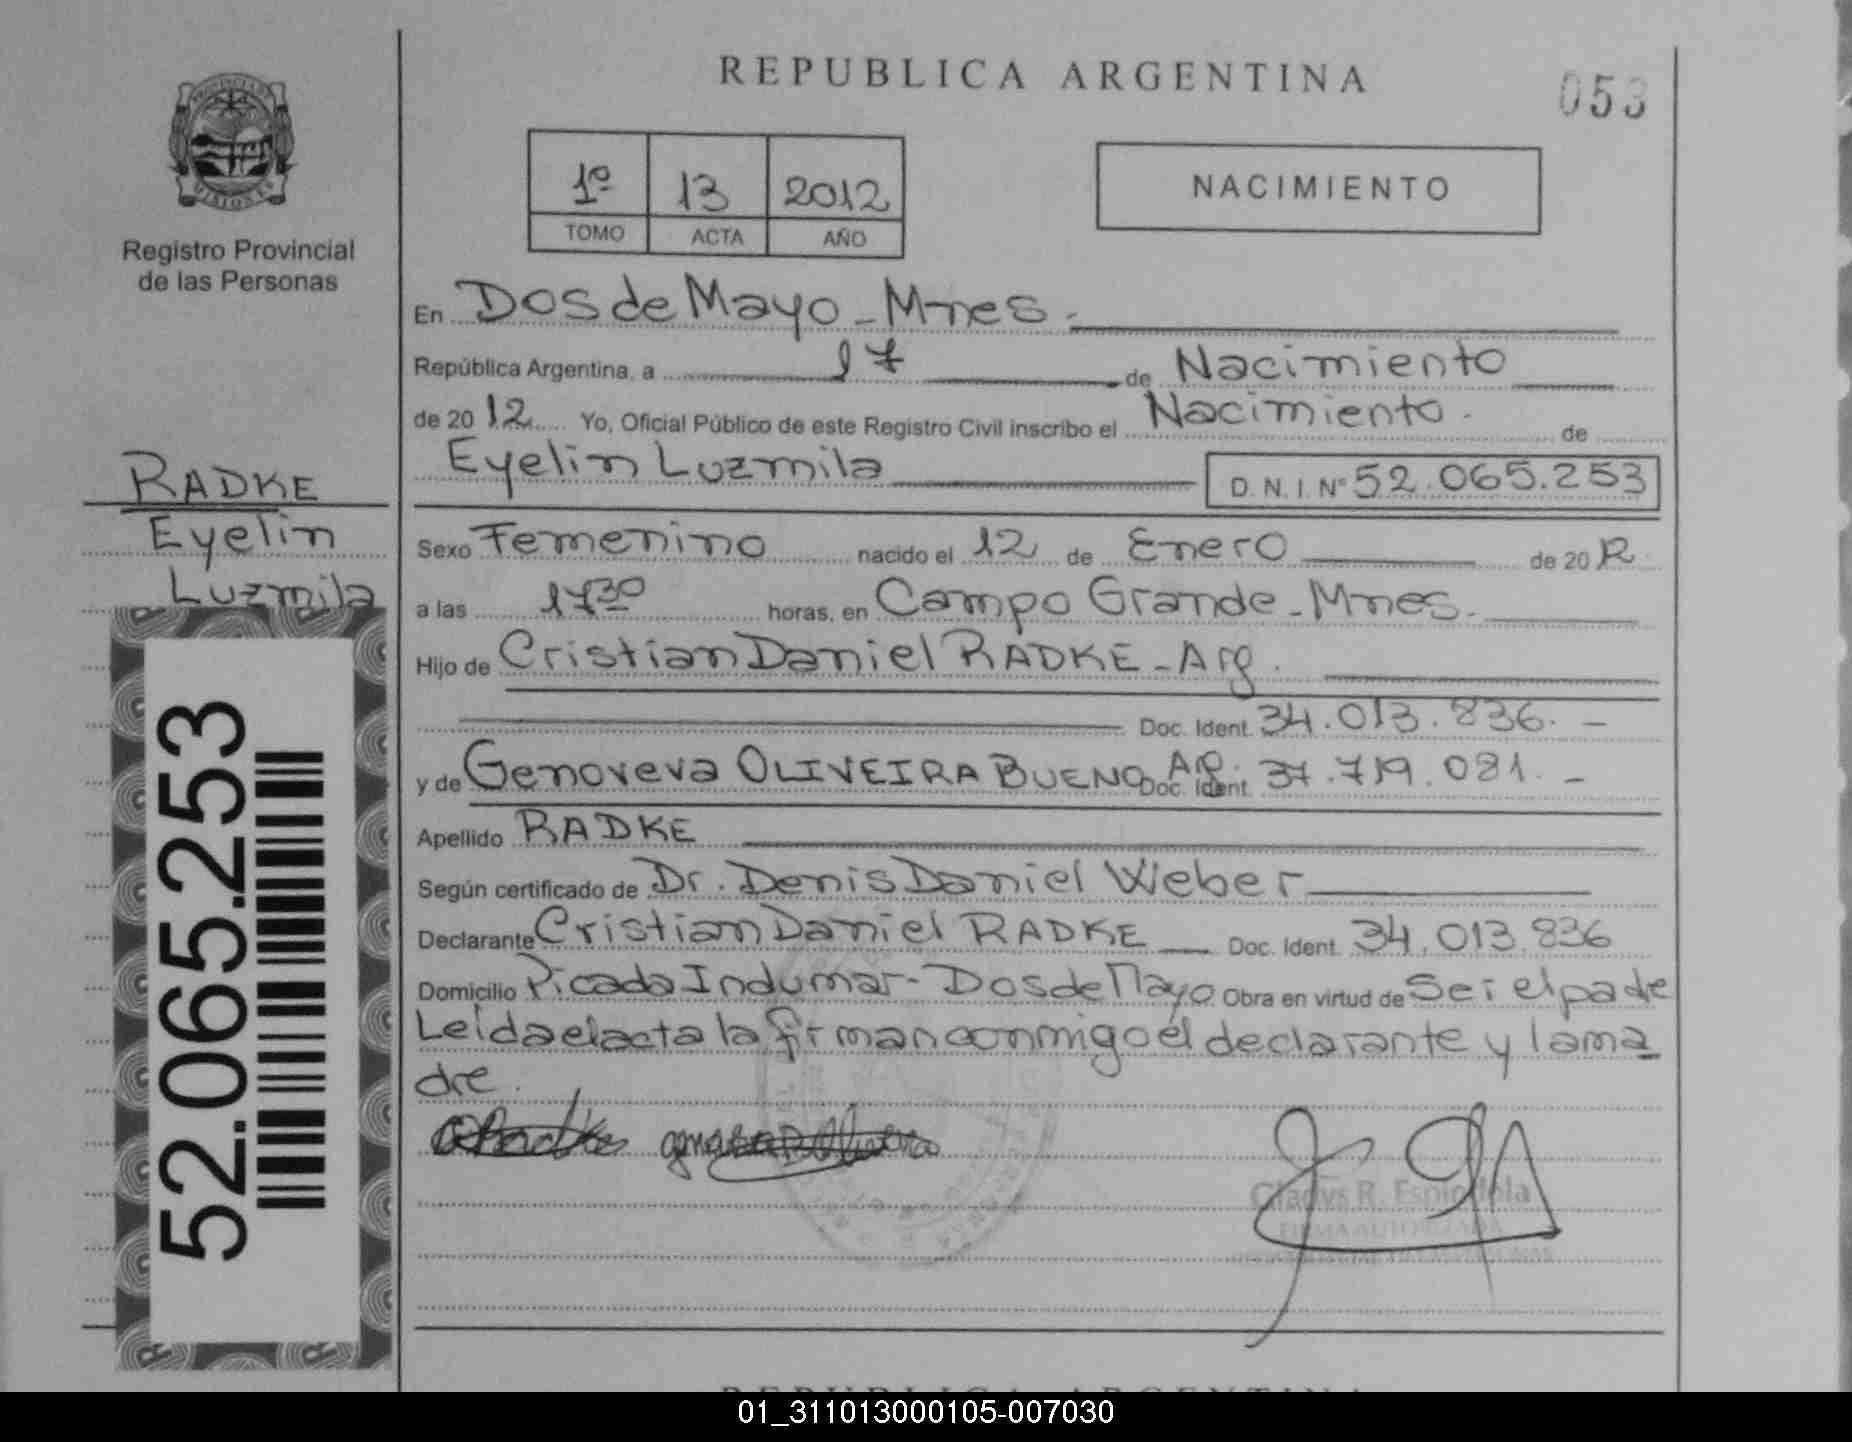 REPUBLICA ARGENTINA
053
PROVINCIA DE
MISIONES
Registro Provincial
de las Personas
1º 13 2012
TOMO ACTA AÑO
NACIMIENTO
En Dos de Mayo - Mnes.
República Argentina, a 17 de Nacimiento
de 2012 Yo, Oficial Público de este Registro Civil inscribo el Nacimiento. de
Eyelin Luzmila D.N.I. Nº 52.065.253
RADKE
Eyelin
Luzmila
52.065.253
Sexo Femenino nacido el 12 de Enero de 2012
a las 17 30 horas, en Campo Grande - Mnes.
Hijo de Cristian Daniel RADKE - Arg.
Doc. Ident. 34.013.836. -
y de Genoveva OLIVEIRA BUENO Arg. Doc. Ident. 37.719.081. -
Apellido RADKE
Según certificado de Dr. Denis Daniel Weber
Declarante Cristian Daniel RADKE Doc. Ident. 34.013.836
Domicilio Picada Indumar - Dos de Mayo Obra en virtud de Ser el padre
Leida el acta la firman conmigo el declarante y la ma
dre.
Gladys R. Espindola
FIRMA AUTORIZADA
REPUBLICA ARGENTINA
01_311013000105-007030